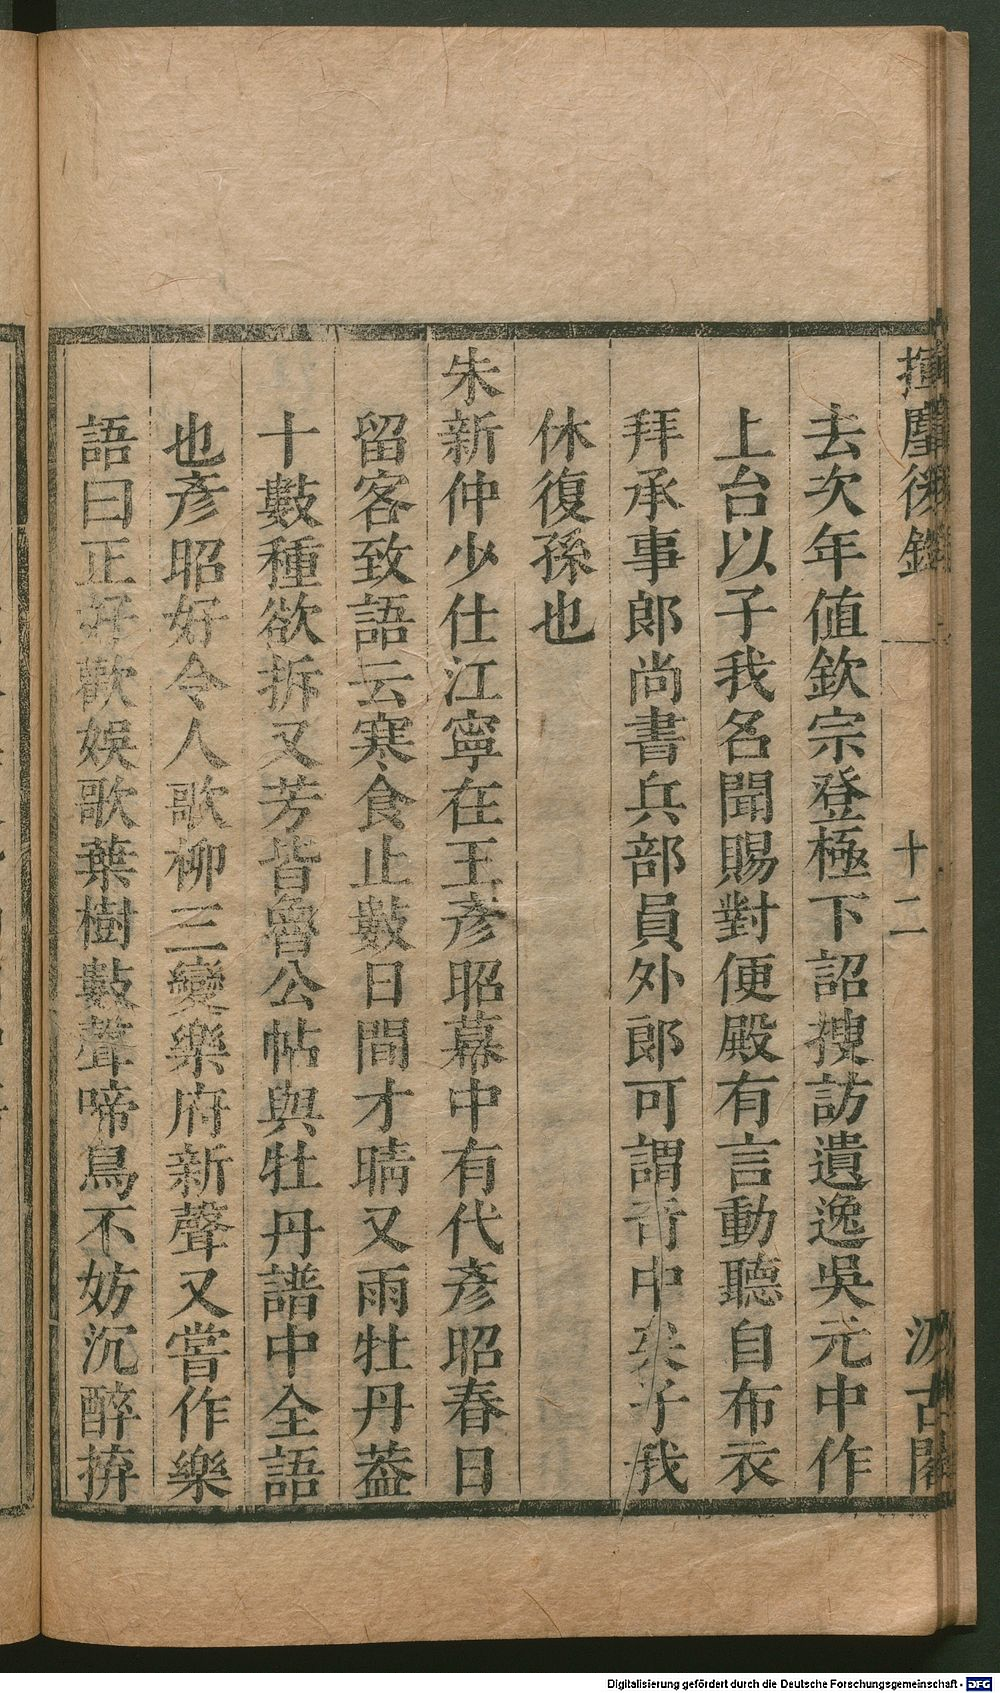 揮麈後錄
十二
汲古閣
去次年值欽宗登極下詔搜訪遺逸吳元中作
上台以子我名聞賜對便殿有言動聽自布衣
拜承事郎尚書兵部員外郎可謂奇中矣子我
休復孫也
朱新仲少仕江寧在王彥昭幕中有代彥昭春日
留客致語云寒食止數日間才晴又雨牡丹葢
十數種欲拆又芳皆魯公帖與牡丹譜中全語
也彥昭好令人歌柳三變樂府新聲又嘗作樂
語曰正好歡娛歌葉樹數聲啼鳥不妨沉醉拚
Digitalisierung gefördert durch die Deutsche Forschungsgemeinschaft - DFG